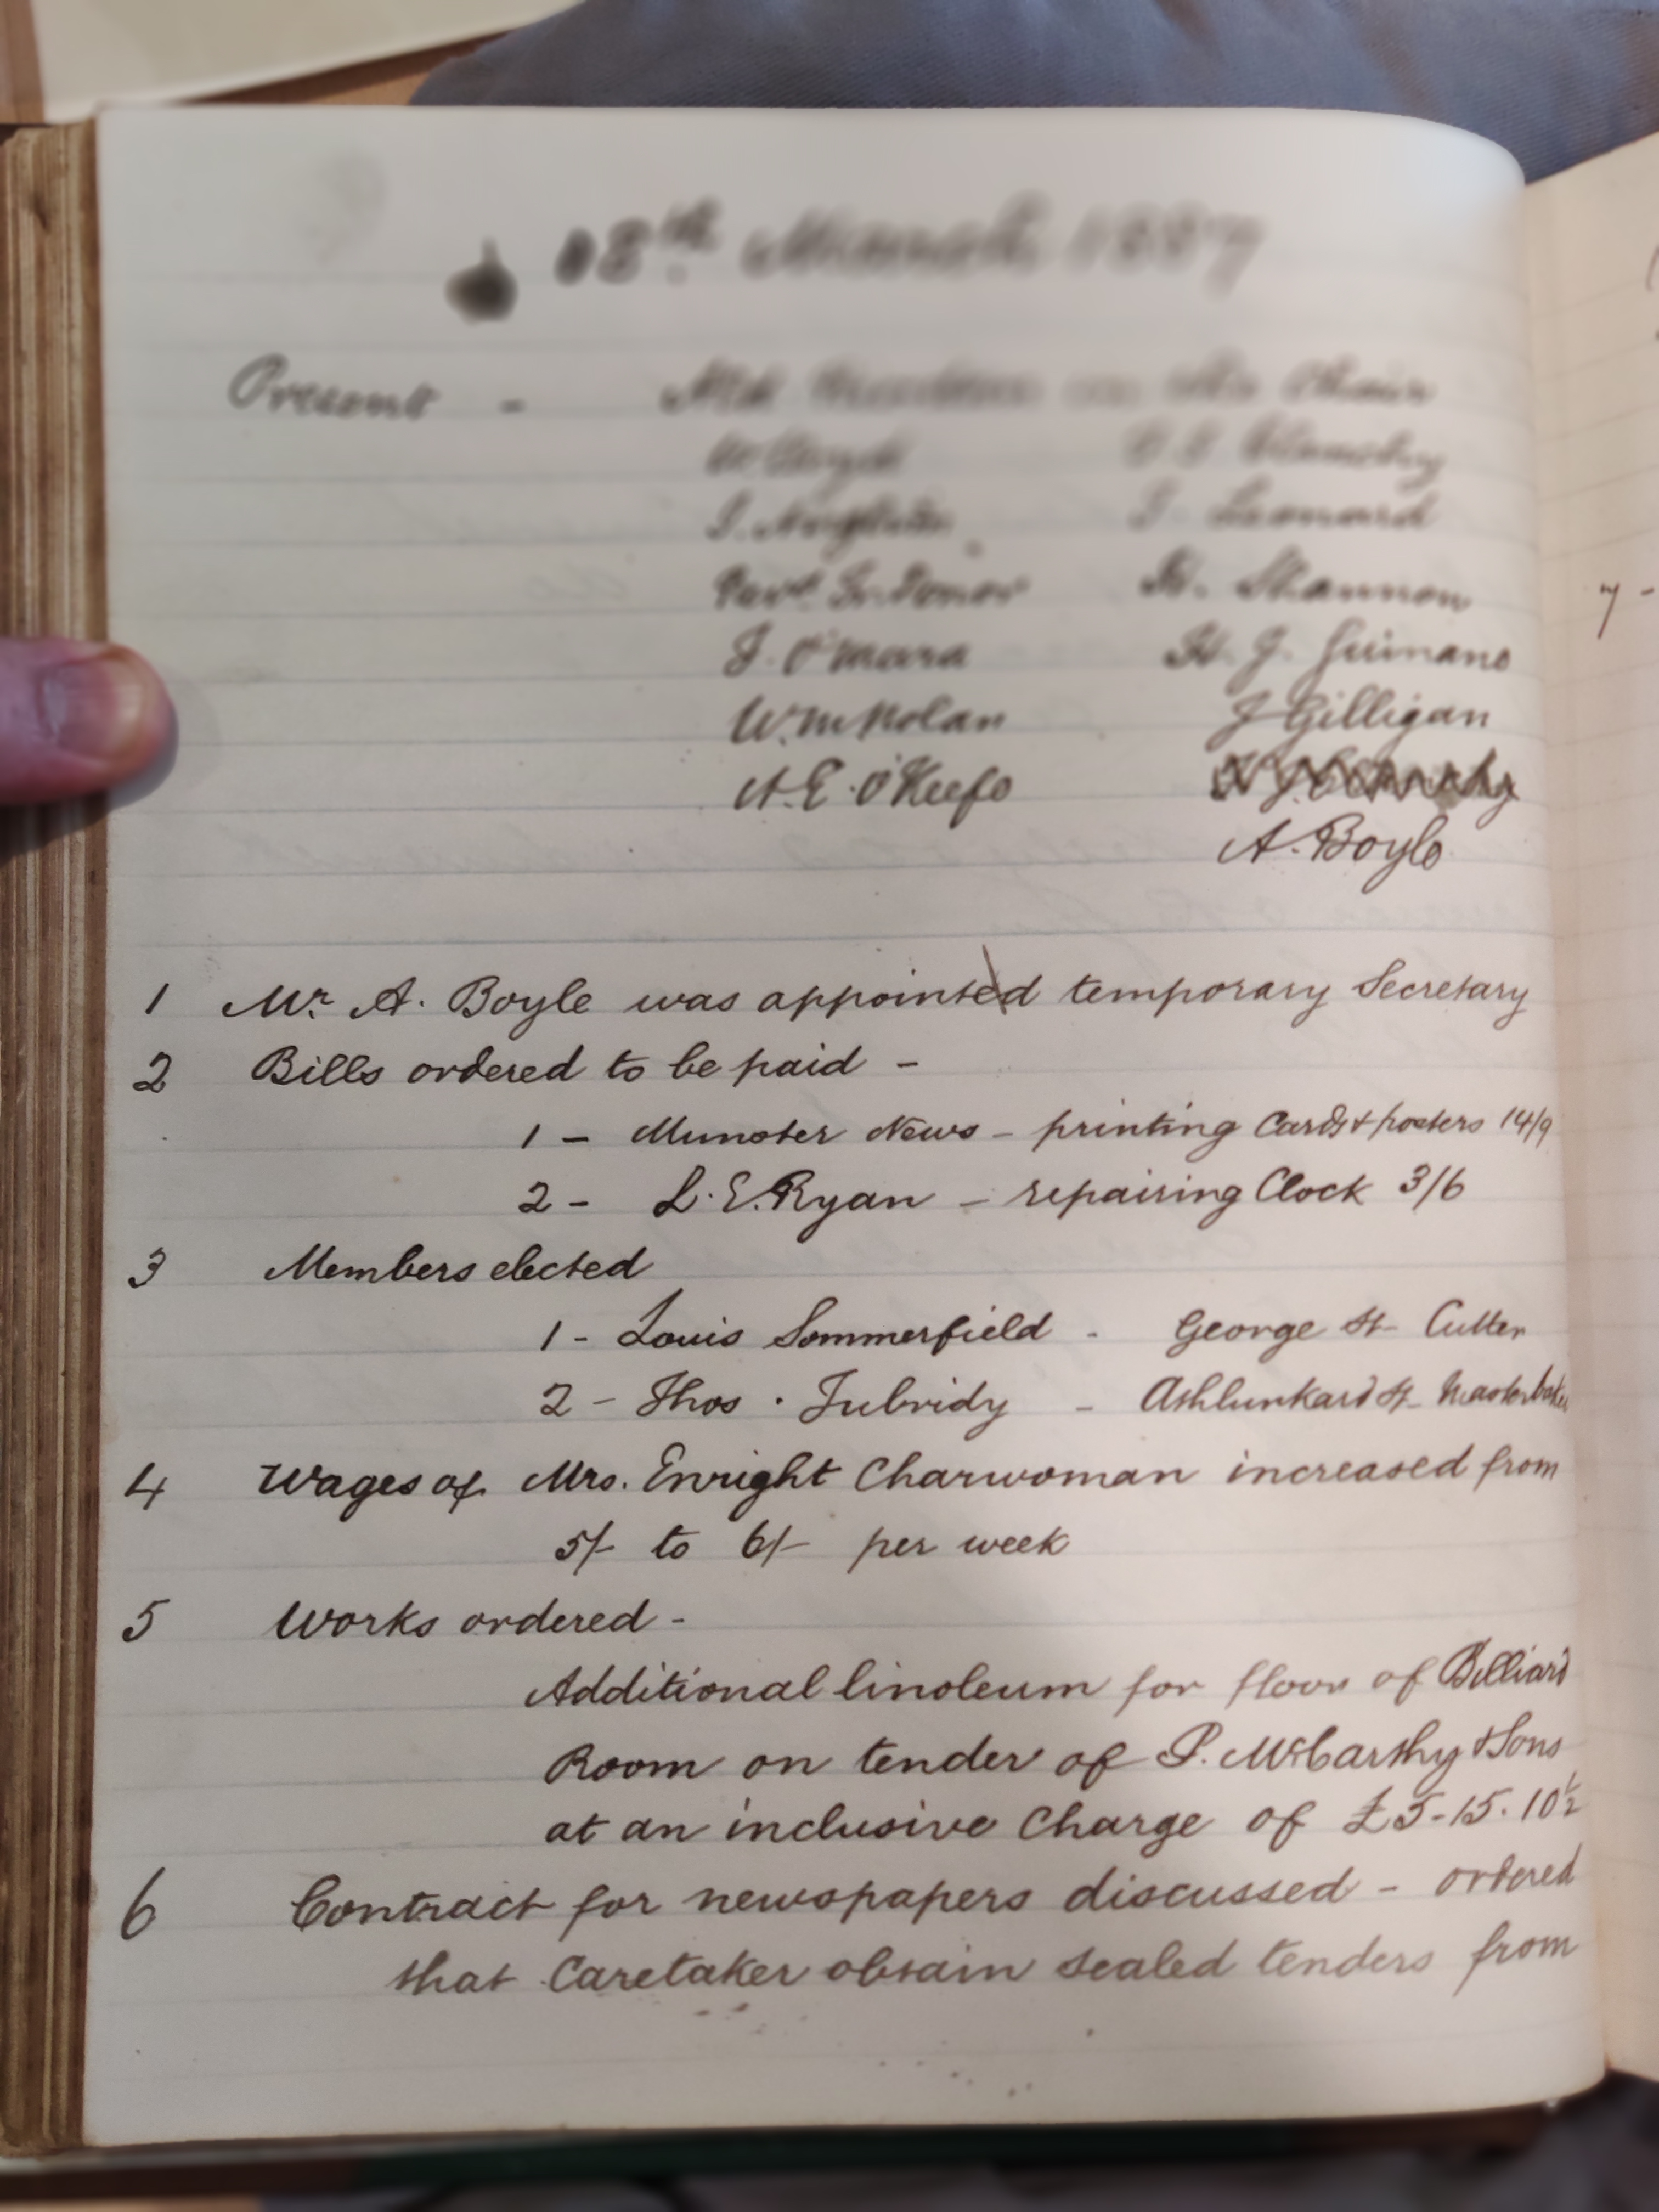 8th March 1887
Present - in the Chair
W Boyd
J. Leonard
H. Shannon
J. O'Mara H. J. Guinane
Wm Nolan J Gilligan
A. E. O'Keefe
A. Boyle
1 Mr. A. Boyle was appointed temporary Secretary
2 Bills ordered to be paid -
1 - Munster News - printing Cards & posters 14/9
2 - L. E. Ryan - repairing Clock 3/6
3 Members elected
1 - Louis Sommerfield - George St- Cutter
2 - Thos. Tubridy - Athlunkard St- Masterbaker
4 Wages of Mrs. Enright Charwoman increased from
5/- to 6/- per week
5 Works ordered -
Additional linoleum for floor of Billiard
Room on tender of P. McCarthy & Sons
at an inclusive Charge of £5-15.10½
6 Contract for newspapers discussed - ordered
that Caretaker obtain sealed tenders from
7 -